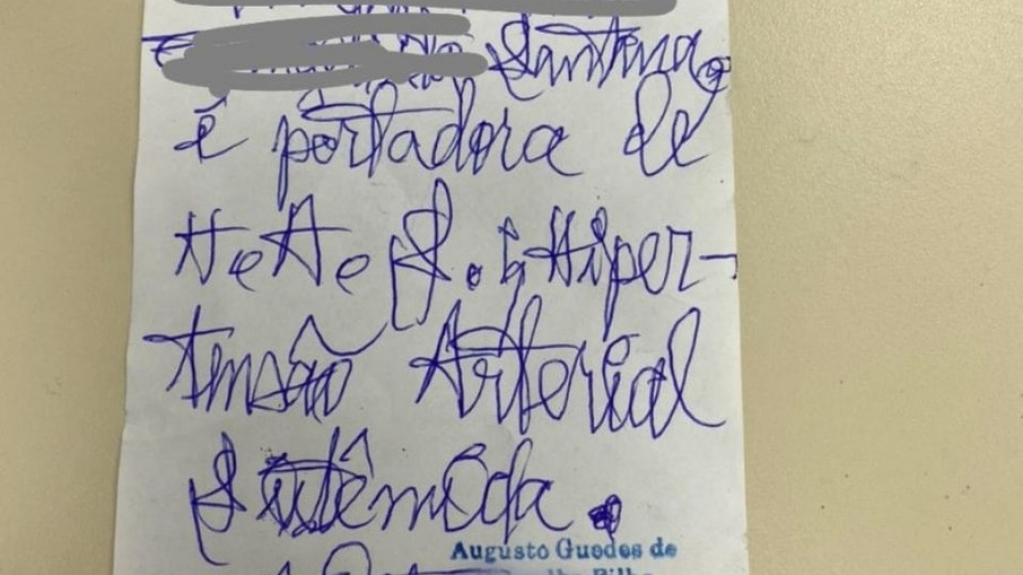 Santana,
é portadora de
H.A.S.: Hiper-
tensão Arterial
Sistêmica.
Augusto Guedes de